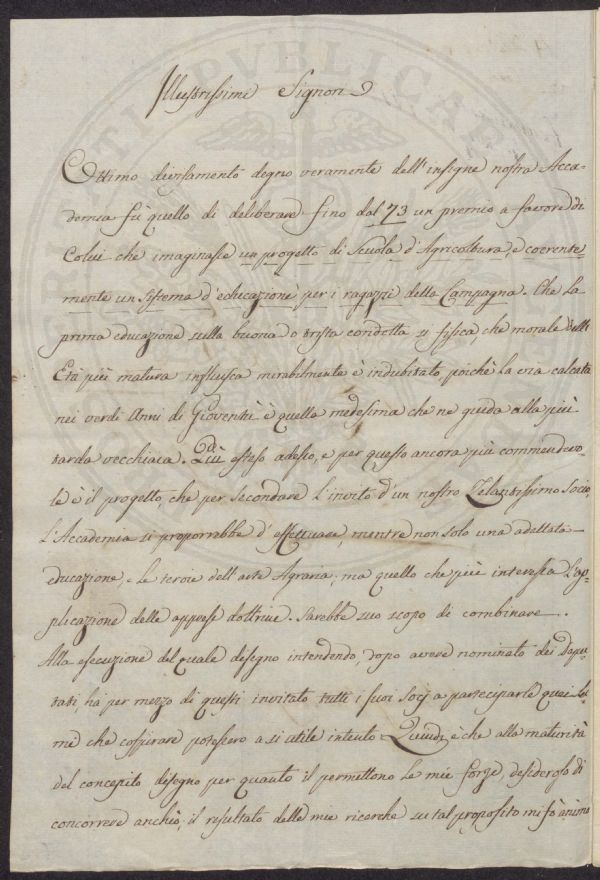 Illustrissimi Signori
Ottimo divisamento degno veramente dell'insigne nostra Acca=
demia fù quello di deliberare fino dal 73 un premio a favore di
Colui che imaginasse un progetto di Scuola d'Agricoltura, e coerente=
mente un sistema d'educazione per i ragazzi della Campagna. Che la
prima educazione sulla buona o trista condotta sì fisica che morale dell'
Età più matura influisca mirabilmente è indubitato poichè la via calcata
nei verdi Anni di Gioventù è quella medesima che ne guida alla più
tarda vecchiaia. Più esteso adesso, e per questo ancora più commendevo=
le è il progetto, che per secondare l'invito d'un nostro Zelantissimo Socio
l'Accademia si proporrebbe d'effettuare, mentre non solo una adattata
educazione, e le teorie dell'arte Agraria, ma quello che più interessa l'ap=
plicazione delle apprese dottrine. Sarebbe suo scopo di combinare.
Alla esecuzione del quale disegno intendendo, dopo avere nominato dei Depu=
tati, ha per mezzo di questi invitato tutti i suoi Socj a parteciparle quei Lu=
mi che cospirare potessero a sì utile intento. Quindi è che alla maturità
del concepito disegno per quanto il permettono le mie forze, desideroso di
concorrere anch'io, il resultato delle mie ricerche su tal proposito mi fò animo
PUBLICAE